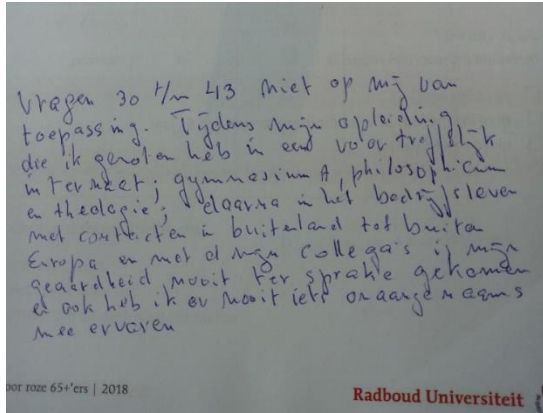 Vragen 30 t/m 43 niet op mij van
toepassing. Tijdens mijn opleiding
die ik genoten heb in een voortreffelijk
internaat; gymnasium A, philosophicum
en theologie; daarna in het bedrijfsleven
met contacten in buitenland tot buiten
Europa en met al mijn collega's is mijn
geaardheid nooit ter sprake gekomen
en ook heb ik er nooit iets onaangenaams
mee ervaren
oor roze 65+'ers | 2018
Radboud Universiteit